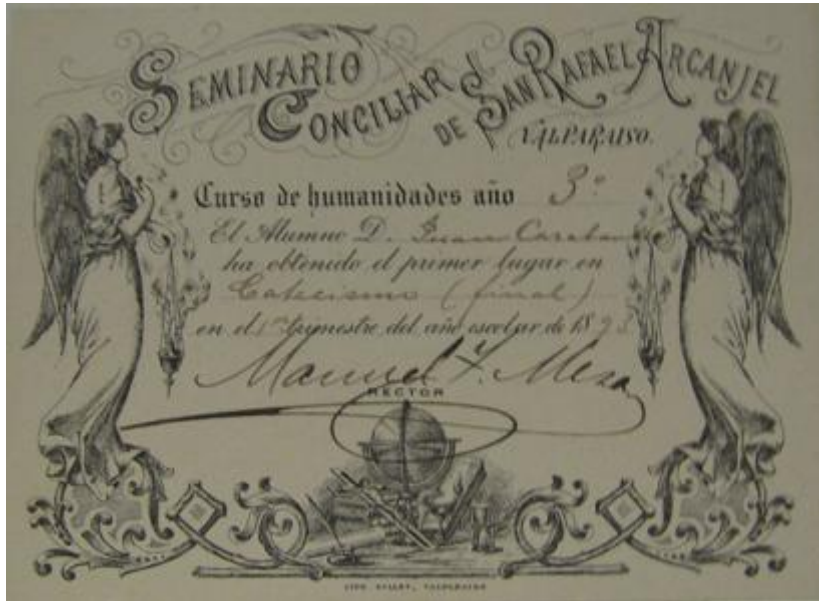 SEMINARIO
CONCILIAR DE SAN RAFAEL ARCANJEL
VALPARAISO.
Curso de humanidades año 3°
El Alumno D. Juan
ha obtenido el primer lugar en
Catecismo (final)
en el 1er trimestre del año escolar de 189
Manuel Meza
RECTOR
VALPARAISO